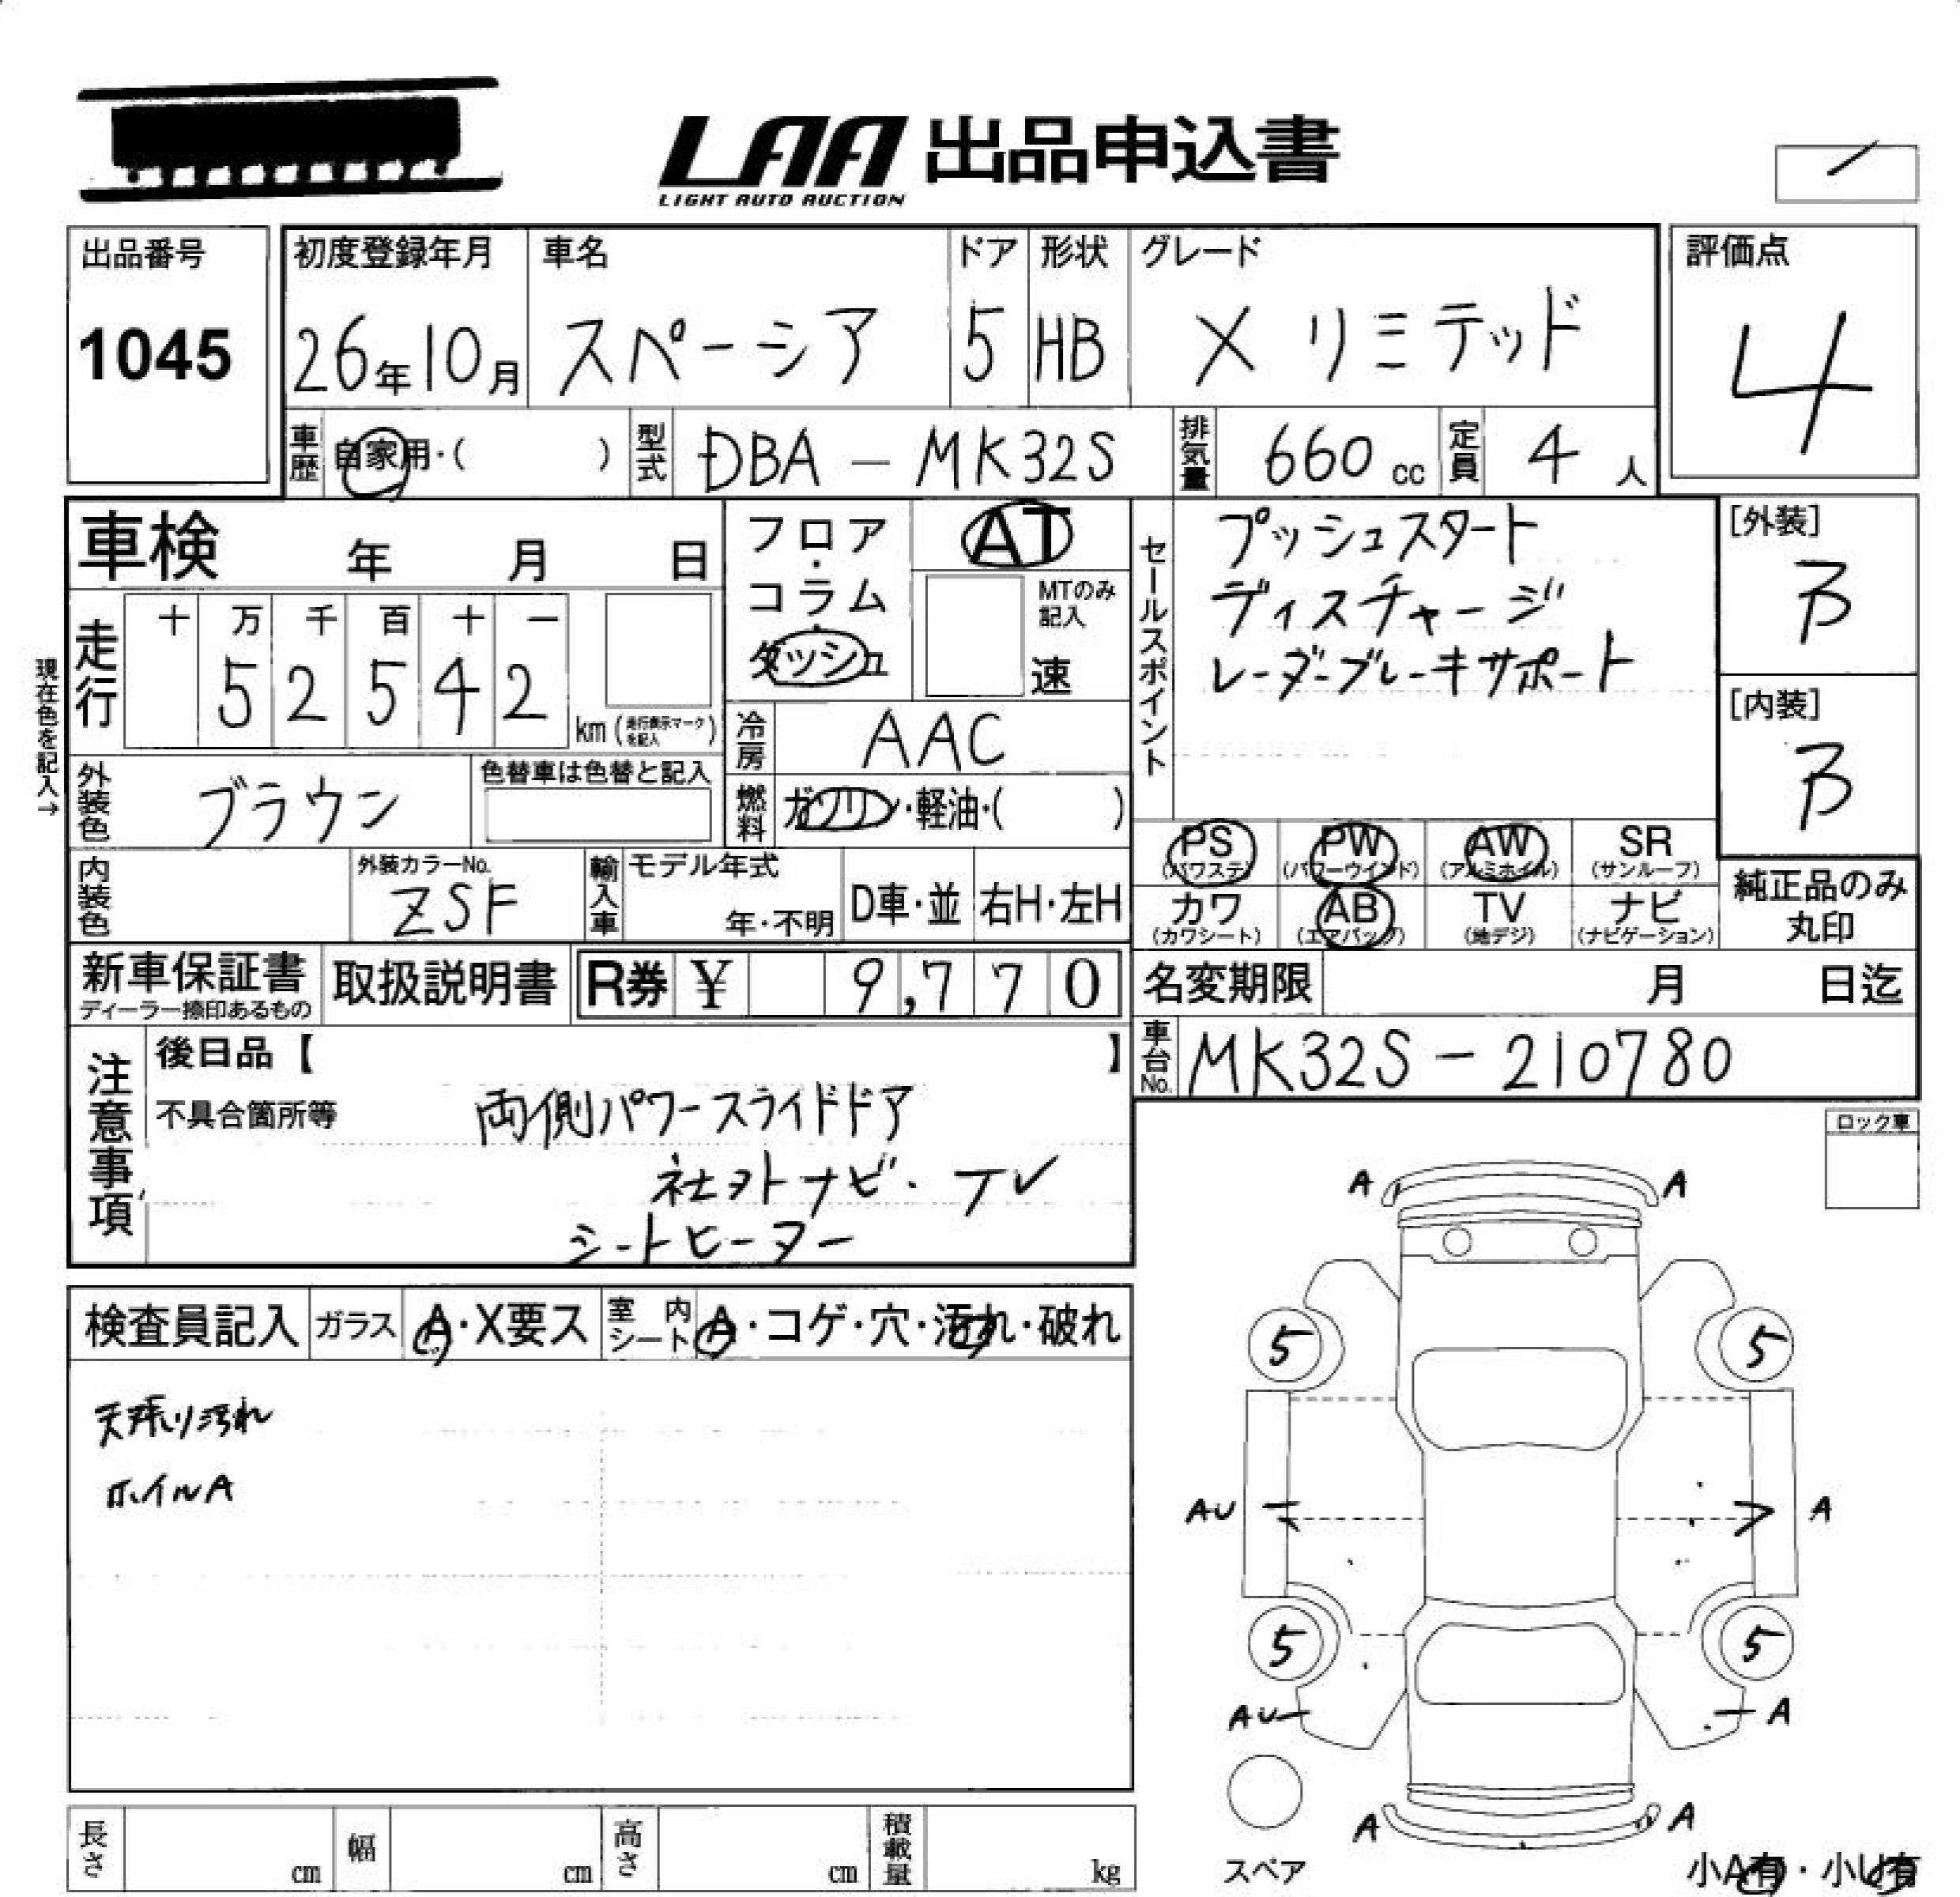 LAA 出品申込書
LIGHT AUTO AUCTION
出品番号
1045
初度登録年月
26年10月
車名
スペーシア
ドア
5
形状
HB
グレード
X リミテッド
評価点
4
車歴
自家用・( )
型式
DBA - MK32S
排気量
660 cc
定員
4 人
車検 年 月 日
フロア・コラム・ダッシュ
AT
MTのみ記入
速
セールスポイント
プッシュスタート
ディスチャージ
レーダーブレーキサポート
[外装]
B
[内装]
B
現在色を記入→
走行
十 万 千 百 十 一
5 2 5 4 2
km (走行表示マークを記入)
冷房
AAC
外装色
ブラウン
色替車は色替と記入
燃料
ガソリン・軽油・( )
PS (パワステ)
PW (パワーウインド)
AW (アルミホイル)
SR (サンルーフ)
カワ (カワシート)
AB (エアバッグ)
TV (地デジ)
ナビ (ナビゲーション)
純正品のみ丸印
内装色
外装カラーNo.
ZSF
輸入車
モデル年式
年・不明
D車・並
右H・左H
新車保証書
ディーラー捺印あるもの
取扱説明書
R券 ¥ 9,770
名変期限 月 日迄
車台No.
MK32S - 210780
注意事項
後日品【 】
不具合箇所等
両側パワースライドドア
社外ナビ・TV
シートヒーター
ロック車
検査員記入
ガラス
A・X要ス
室内シート
A・コゲ・穴・汚れ・破れ
天張り汚れ
ホイルA
A A
5 5
AU A
5 5
AU A
A A
スペア
小A有・小U有
長さ cm
幅 cm
高さ cm
積載量 kg